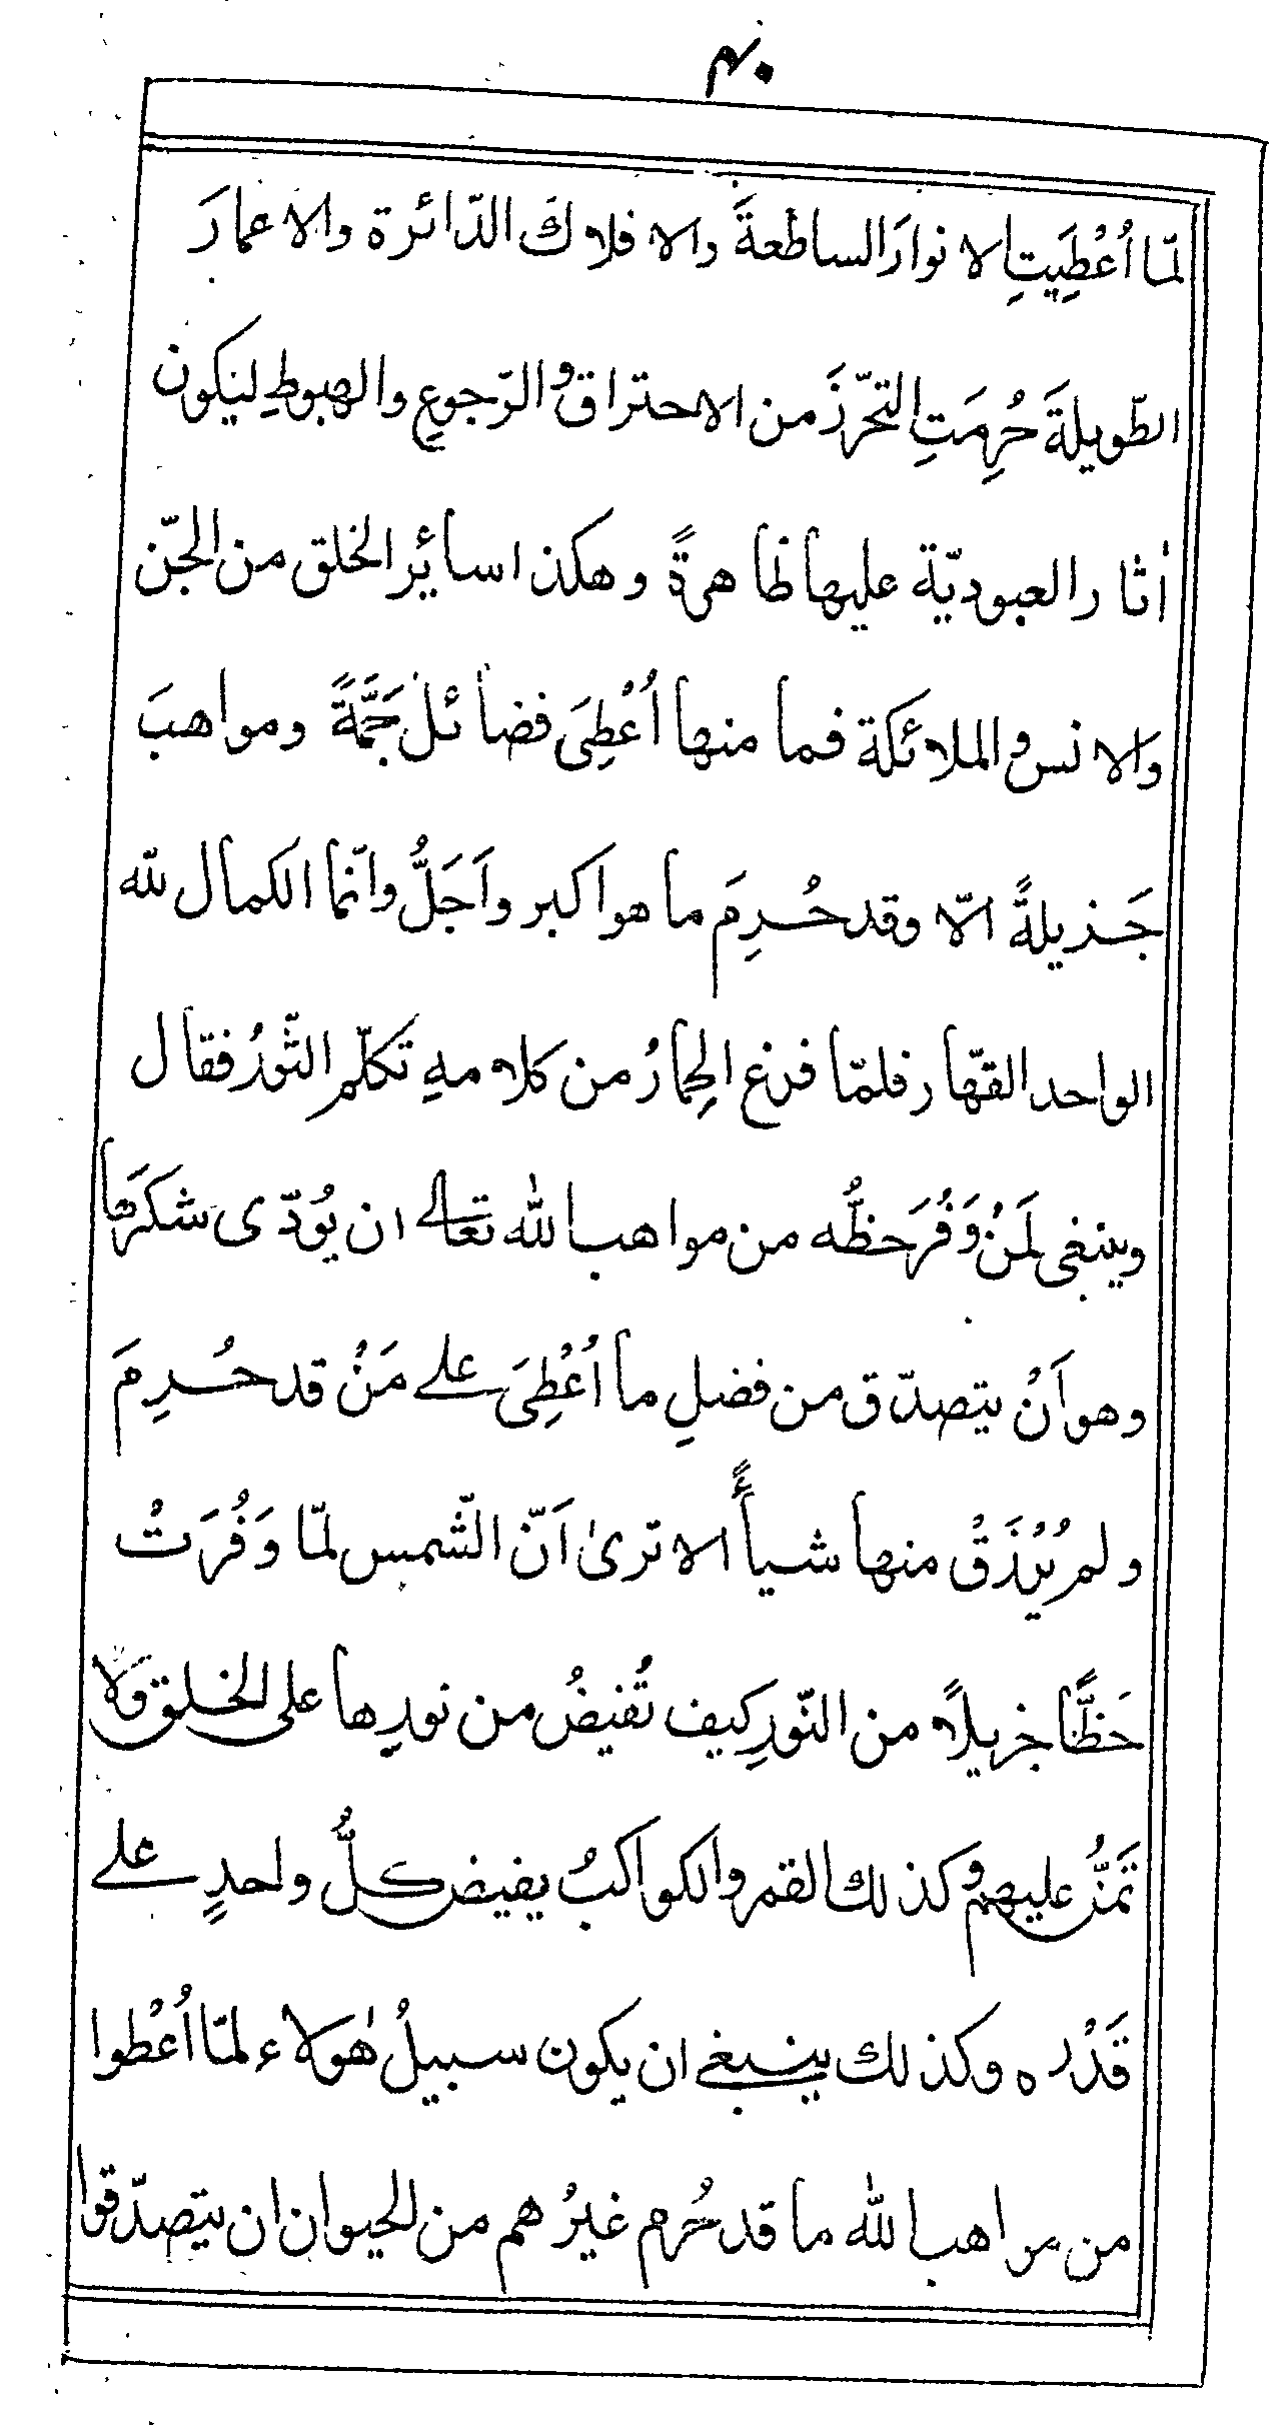 ۴۰
لمّا اُعْطِيَتِ الانوارَ الساطعةَ والافلاكَ الدّائرة والاعمارَ
الطّويلةَ حُرِمَتِ التحرّزَ من الاحتراق والرّجوعِ والهبوطِ ليكون
اٰثار العبوديّة عليها ظاهرةً وهكذا سائر الخلق من الجّن
والانس والملائكة فما منها اُعْطِىَ فضائل جَمَّةً ومواهبَ
جَذيلةً الّا وقد حُرِمَ ما هو اكبر واَجَلُّ وانّما الكمال لله
الواحد القهّار فلمّا فرغ الحِمارُ من كلامهِ تَكلّم الثّورُ فقال
وينبغى لمَنْ وَفُرَ حظُّه من مواهب الله تعالے ان يُودّى شكرَها
وهو اَنْ يتصدّق من فضلِ ما اُعْطِىَ علے مَنْ قد حُرِمَ
ولم يُرْزَقْ منها شيأً الا ترىٰ اَنّ الشّمس لمّا وَفُرَتْ
حَظًّا خريلًا من النّورِ كيف تُفيضُ من نورِها على الخلق ولا
تَمنُّ عليهم وكذلك القمر والكواكبُ يفيض كلُّ واحدٍ علے
قَدْره وكذلك ينبغے ان يكون سبيلُ هٰولاء لمّا اُعْطوا
من مواهب الله ما قد حُرم غيرُهم من الحيوان ان يتصدّقوا